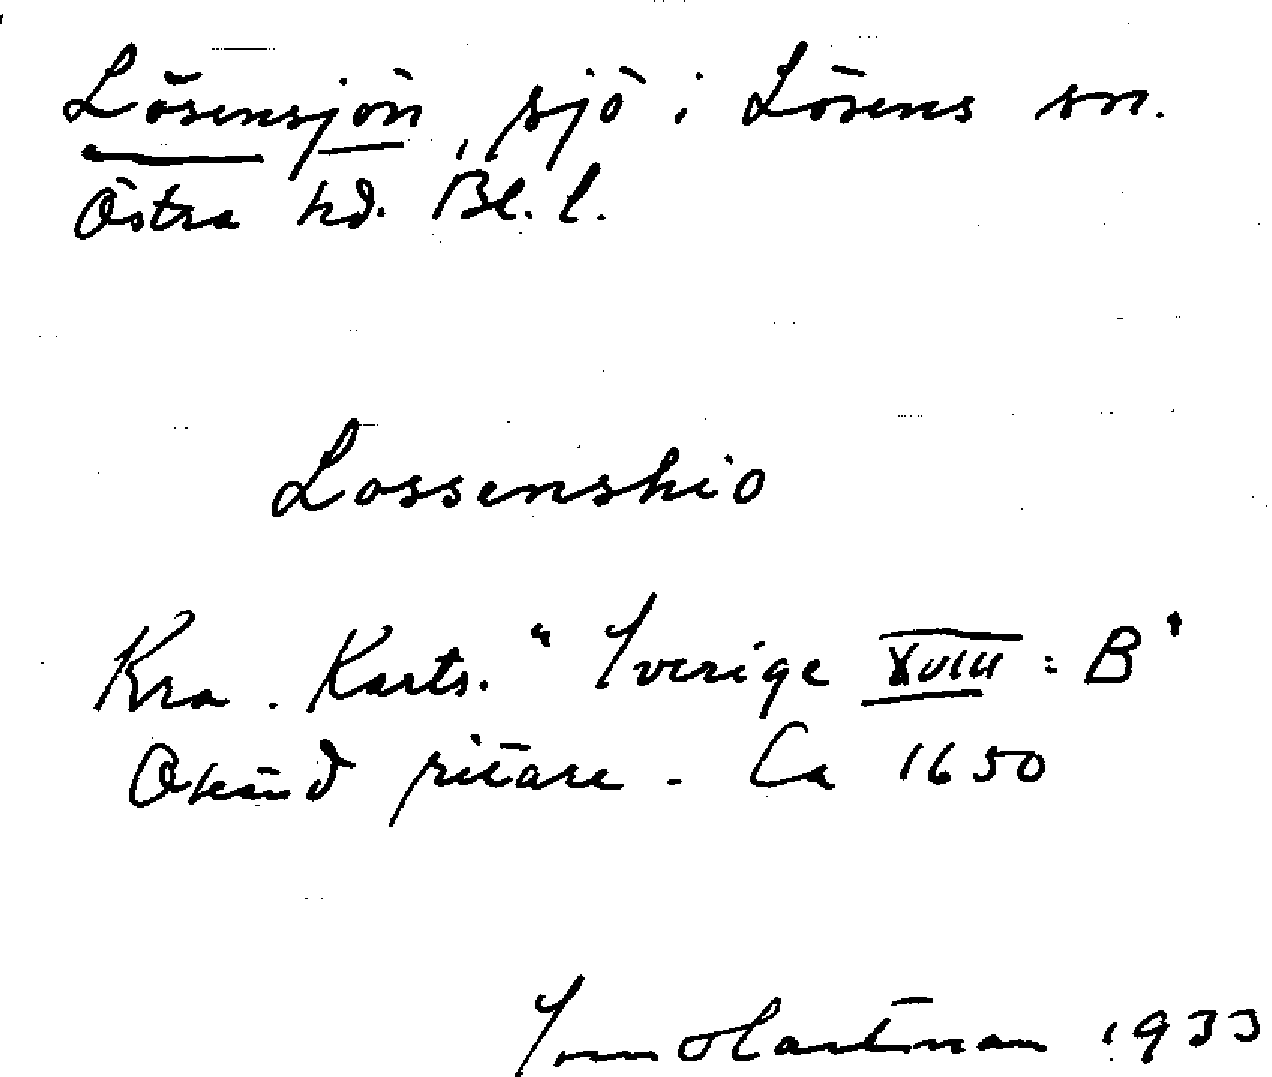 Lösensjön, sjö i Lösens sn.
Östra hd. Bl. l.
Lossenskio
Kra. Karts. "Sverige XVIII : B"
Okänd ritare - Ca 1650
Hartman 1933